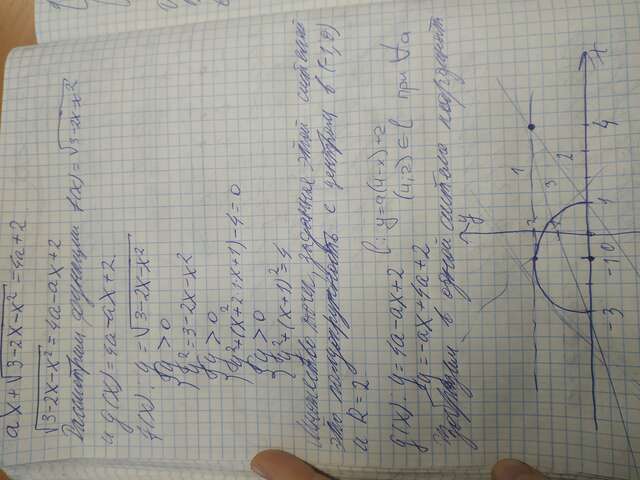 ax+√3-2x-x² = 4a+2
√3-2x-x² = 4a-ax+2
Рассмотрим функции f(x)=√3-2x-x²
и g(x)=4a-ax+2.
f(x): y=√3-2x-x²
{y ≥ 0
{y²=3-2x-x²
{y ≥ 0
{y²+(x²+2·1·x+1)-4=0
{y ≥ 0
{y²+(x+1)²=4
Множество точек, заданная этой системой
это полуокружность с центром в (-1,0)
и R=2
g(x): y=4a-ax+2 l: y=a(4-x)+2
y=-ax+4a+2. (4,2)∈l при ∀a
в одной системе координат
y
1
2
3
2
-3 -1 0 1 4 x